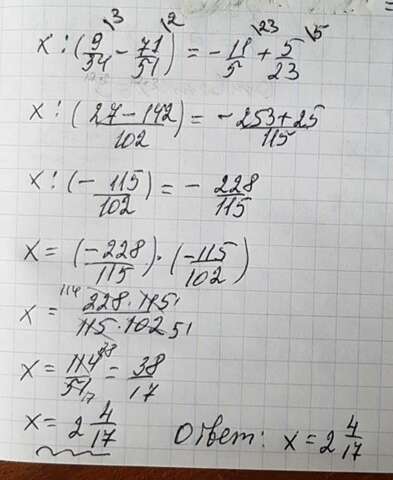 x : (9/34 \3 − 71/51 \2) = −11/5 \23 + 5/23 \5
x : (27−142/102) = −253+25/115
x : (−115/102) = −228/115
x = (−228/115) · (−115/102)
x = 114 228 · 115 1/115 · 102 51
x = 114 38/51 17 = 38/17
x = 2 4/17 Ответ: x = 2 4/17